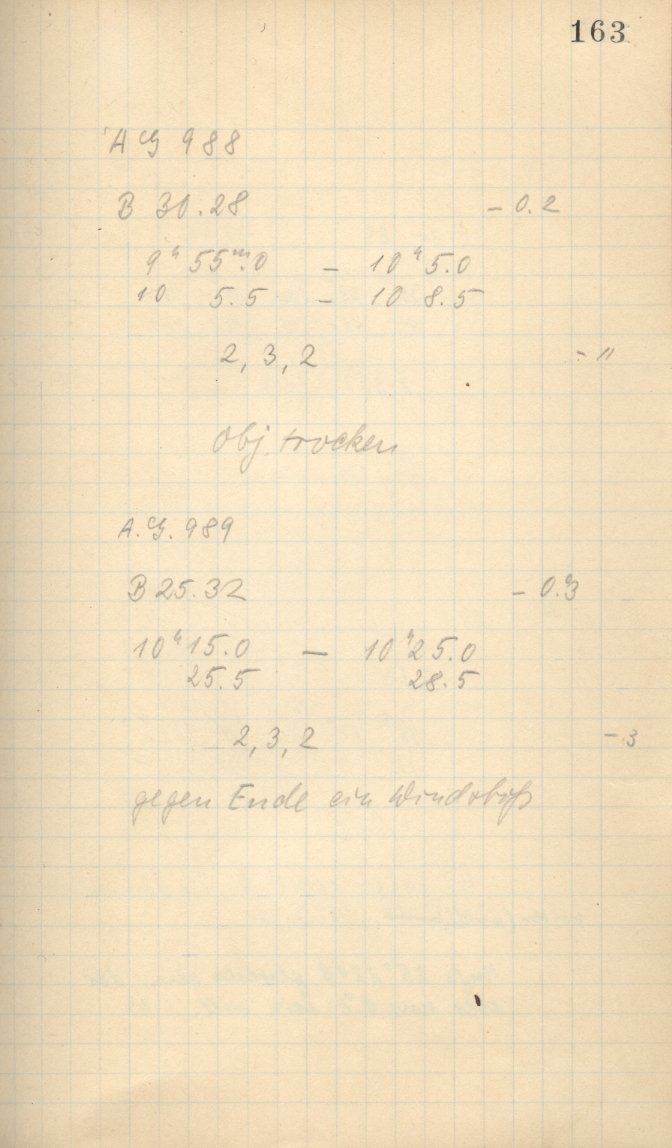 163
A G 988
B 30.28 – 0.2
9ʰ 55ᵐ.0 – 10ʰ 5.0
10 5.5 – 10 8.5
2, 3, 2 – 11
Obj. trocken
A.G. 989
B 25.32 – 0.3
10ʰ 15.0 – 10ʰ 25.0
25.5 28.5
2, 3, 2 – 3
gegen Ende ein Windstoß